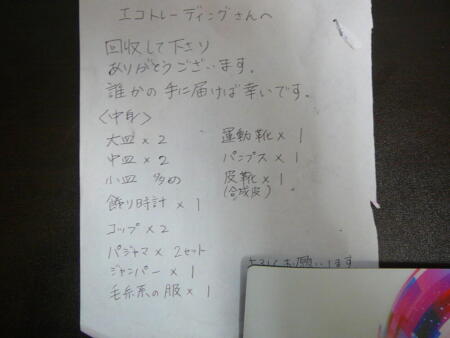 エコトレーディングさんへ
回収して下さり
ありがとうございます。
誰かの手に届けば幸いです。
〈中身〉
大皿 × 2
中皿 × 2
小皿 多め
飾り時計 × 1
コップ × 2
パジャマ × 2セット
ジャンパー × 1
毛糸系の服 × 1
運動靴 × 1
パンプス × 1
皮靴 × 1
(合成皮)
お願いします